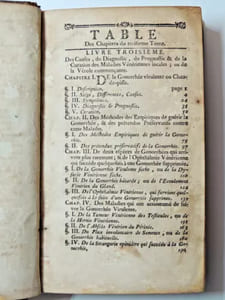 TABLE
Des Chapitres du troisieme Tome.
LIVRE TROISIEME.
Des Causes, du Diagnostic, du Prognostic & de la
Curation des Maladies Vénériennes locales; ou de
la Vérole commençante.
CHAPITRE I. DE la Gonorrhée virulente ou Chaude-
pisse.
§. I. Description. page 1
§. II. Siége, Différences, Causes.
§. III. Symptômes.
§. IV. Diagnostic & Prognostic.
§. V. Curation.
CHAP. II. Des Méthodes des Empiriques de guérir la
Gonorrhée, & des prétendus Préservatifs contre
cette Maladie.
§. I. Des Méthodes Empiriques de guérir la Gonor-
rhée.
§. II. Des prétendus préservatifs de la Gonorrhée.
CHAP. III. De deux especes de Gonorrhées qui arri-
vent plus rarement, & de l'Ophthalmie Vénérienne
qui succéde quelquefois à une Gonorrhée supprimée.
§. I. De la Gonorrhée seche, ou de la Dy-
surie Vénérienne seche.
§. II. De la Gonorrhée bâtarde; ou de l'Ecoulement
Vénérien du Gland.
§. III. De l'Ophthalmie Vénérienne, qui survient quel-
quefois à la suite d'une Gonorrhée supprimée.
CHAP. IV. Des Maladies qui ont accoutumé de sui-
vre la Gonorrhée virulente.
§. I. De la Tumeur Vénérienne des Testicules, ou de la
Hernie Vénérienne.
§. II. De l'Abscès Vénérien du Périnée.
§. III. Du Flux involontaire de Semence, ou de la
Gonorrhée habituelle.
§. IV. De la Strangurie opiniâtre qui succéde à la Go-
norrhée,